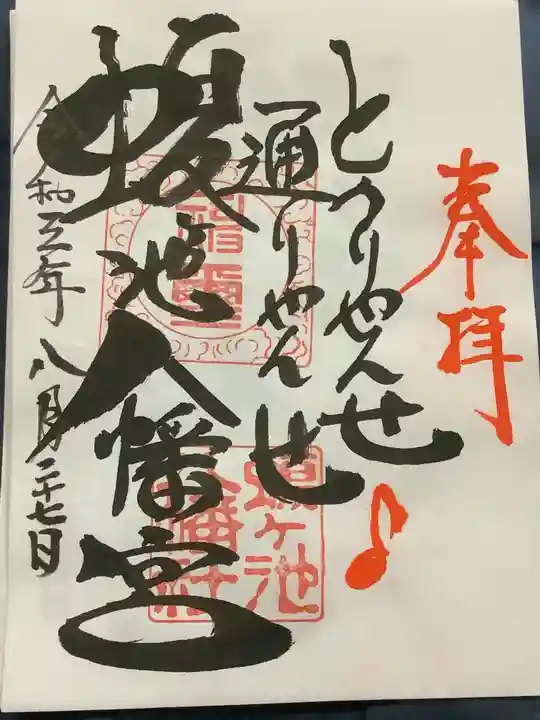 奉拝
とうりやんせ
通りやんせ
蝦池八幡宮
蝦ヶ池
八幡社
令和三年八月二十七日